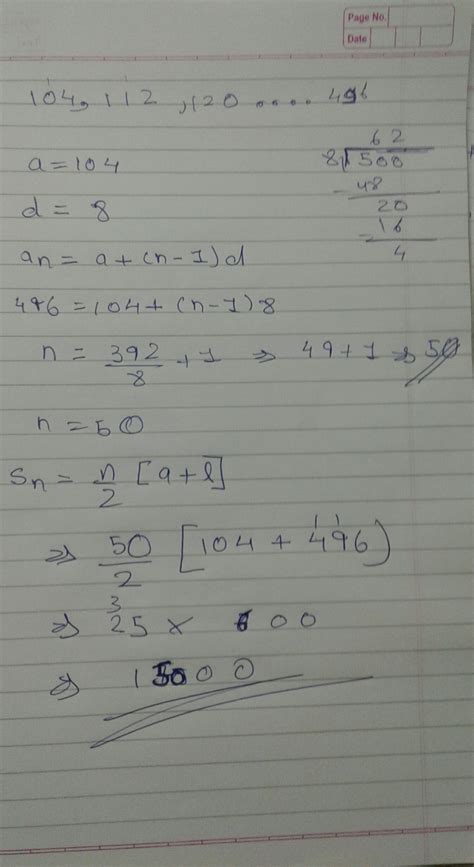 Page No.
Date
104, 112, 120 .... 496
a = 104
d = 8
an = a + (n-1)d
496 = 104 + (n-1)8
n = 392/8 + 1 ⇒ 49 + 1 ⇒ 50
n = 50
Sn = n/2 [a + l]
⇒ 50/2 [104 + 496)
⇒ 25 × 600
⇒ 15000
62
8 √500
- 48
20
- 16
4